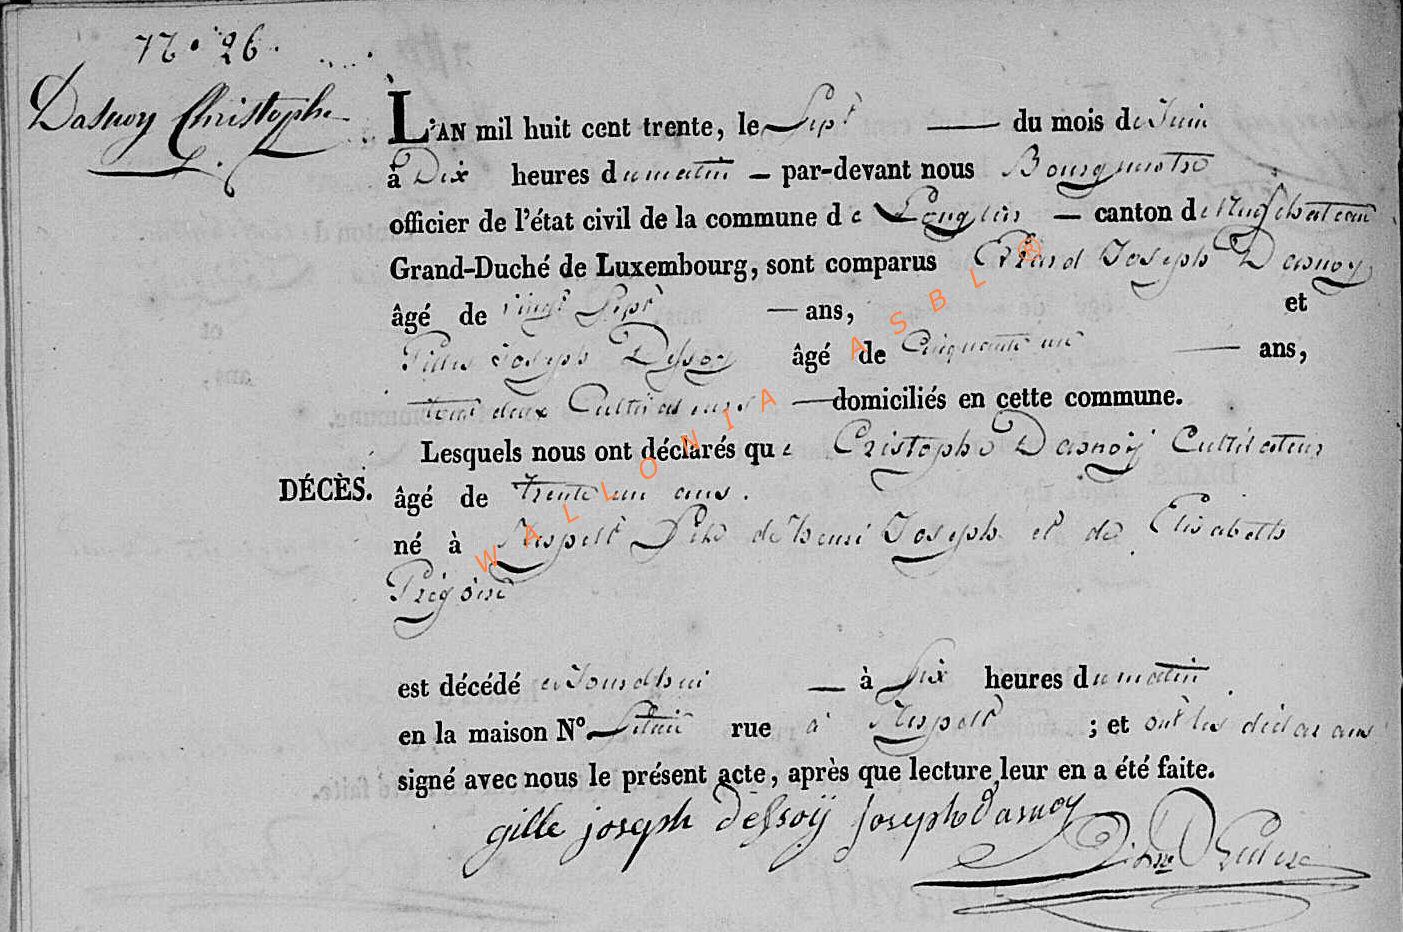 N° 26.
Dasnoy Christophe
L'AN mil huit cent trente, le Sept du mois de Juin
à Dix heures du matin — par-devant nous Bourgmestre
officier de l'état civil de la commune de Longlier — canton de Neufchateau
Grand-Duché de Luxembourg, sont comparus Joseph Dasnoy
âgé de vingt Sept — ans, et
Joseph Dessoy âgé de Cinquante un — ans,
tous deux Cultivateurs — domiciliés en cette commune.
Lesquels nous ont déclarés que Cristophe Dasnoy Cultivateur
DÉCÈS. âgé de trente un ans.
né à Respelt Fils de henri Joseph et de Elisabeth
est décédé aujourdhui — à Six heures du matin
en la maison N° rue à Respelt ; et ont les déclarans
signé avec nous le présent acte, après que lecture leur en a été faite.
gille joseph Dessoÿ Joseph Dasnoy
WALLONIA ASBL ®